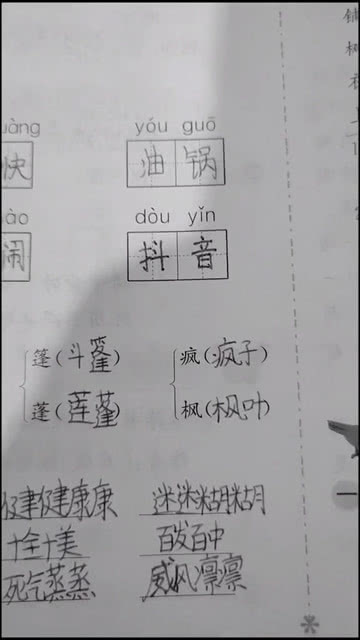 uàng yóu guō
快 油锅
ào dòu yǐn
闹 抖音
篷(斗篷) 疯(疯子)
蓬(莲蓬) 枫(枫叶)
健健康康 迷迷糊糊
十全十美 百发百中
死气蒸蒸 威风凛凛